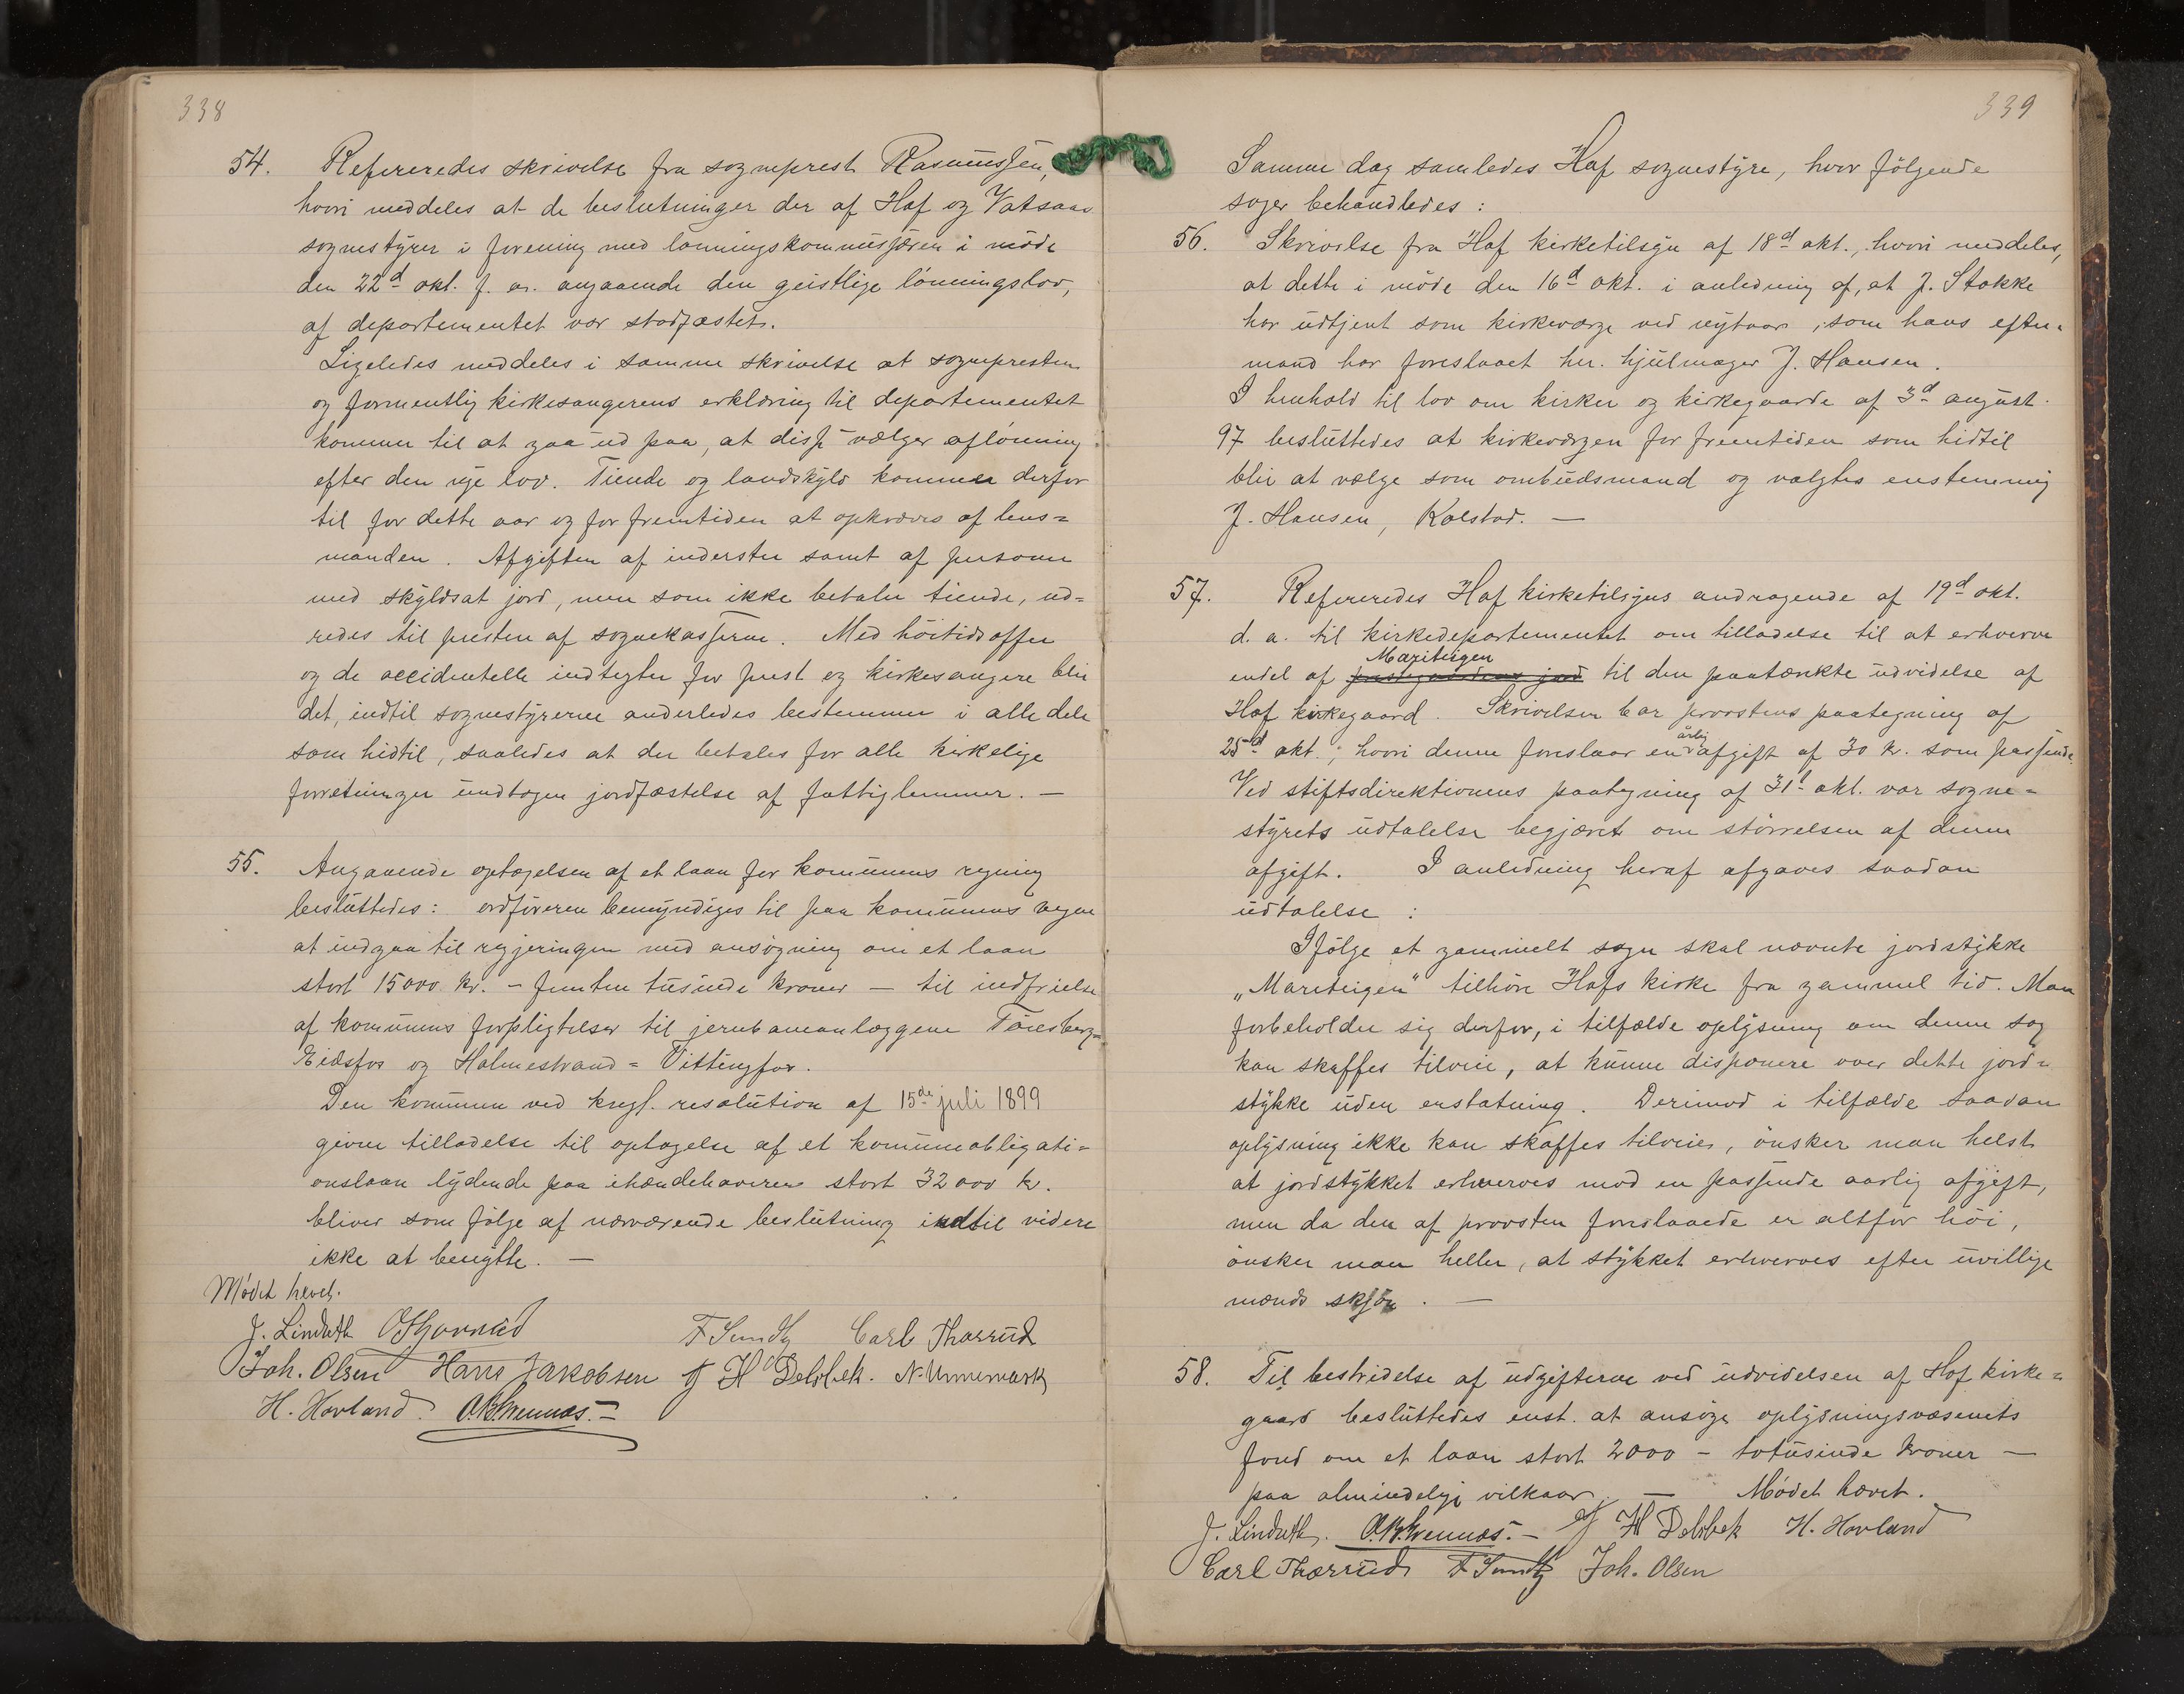 338
54. Refereredes skrivelse fra sogneprest Rasmussen,
hvori meddeles at de beslutninger der af Hof og Vatsaas
sognestyrer i forening med lønningskommissjonen i møde
den 22d okt. f. a. angaaende den geistlige lønningslov,
af departementet var stadfæstet.
Ligeledes meddeles i samme skrivelse at sognepresten
og formentlig kirkesangerens erklæring til departementet
kommer til at gaa ud paa, at disse vælger aflønning
efter den nye lov. Tiende og landskyld kommer derfor
til for dette aar og for fremtiden at opkræves af lens=
manden. Afgiften af inderster samt af personer
med skyldsat jord, men som ikke betaler tiende, ud=
redes til presten af sognekasserne. Med höitidsoffer
og de accidentelle indtegter for prest og kirkesangere blir
det, indtil sognestyrerne anderledes bestemmer i alle dele
som hidtil, saaledes at der betales for alle kirkelige
forretninger undtagen jordfæstelse af fattiglemmer. —
55. Angaaende optagelsen af et laan for kommunens regning
besluttedes: ordföreren bemyndiges til paa kommunens vegne
at indgaa til regjeringen med ansögning om et laan
stort 15000 kr. - femten tusinde kroner — til indfrielse
af kommunens forpligtelser til jernbaneanlæggene Tönsberg=
Eidsfos og Holmestrand = Vittingfos.
Den kommunen ved kngl. resolution af 15de juli 1899
givne tilladelse til optagelse af et kommuneobligati=
onslaan lydende paa ihændehaveren stort 32000 kr.
bliver som fölge af nærværende beslutning indtil videre
ikke at benytte. —
Mödet hevet.
J. Lindseth O Thorrud F Sundby Carl Thorrud
Joh. Olsen Hans Jakobsen H Delebek. N. Unnemark
H. Hovland.
339
Samme dag samledes Hof sognestyre, hvor fölgende
sager behandledes:
56. Skrivelse fra Hof kirketilsyn af 18d okt., hvori meddeles,
at dette i möde den 16d okt. i anledning af, at J. Stokke
har udtjent som kirkeværge ved nytaar, som hans efter=
mand har foreslaaet hr. hjulmager J. Hansen.
I henhold til lov om kirker og kirkegaarde af 3d august
97 besluttedes at kirkeværgen for fremtiden som hidtil
blir at vælge som ombudsmand og valgtes enstemmig
J. Hansen, Kolstad. —
57. Refereredes Hof kirketilsyns andragende af 19d okt.
d. a. til kirkedepartementet om tilladelse til at erhverve
Mariteigen
endel af prestegaardens jord til den paatænkte udvidelse af
Hof kirkegaard. Skrivelsen bar provstens paategning af
årlig
25d okt., hvori denne foreslaar en afgift af 30 kr. som passende.
Ved stiftsdirektionens paategning af 31d okt. var sogne=
styrets udtalelse begjæret om störrelsen af denne
afgift. I anledning heraf afgaves saadan
udtalelse :
Ifölge et gammelt sagn skal nævnte jordstykke
„Mariteigen" tilhöre Hofs kirke fra gammel tid. Man
forbeholder sig derfor, i tilfælde oplysning om denne sag
kan skaffes tilveie, at kunne disponere over dette jord=
stykke uden erstatning. Derimod i tilfælde saadan
oplysning ikke kan skaffes tilveie, önsker man helst
at jordstykket erhverves mod en passende aarlig afgift,
men da den af provsten foreslaaede er altfor höi,
önsker man heller, at stykket erhverves efter uvillige
mænds skjön. —
58. Til bestridelse af udgifterne ved udvidelsen af Hof kirke=
gaard besluttedes enst. at ansöge oplysningsvæsenets
fond om et laan stort 2000 - totusinde kroner —
paa almindelige vilkaar. — Mödet hævet.
J. Lindseth. H Delebek H. Hovland
Carl Thorrud F Sundby Joh. Olsen